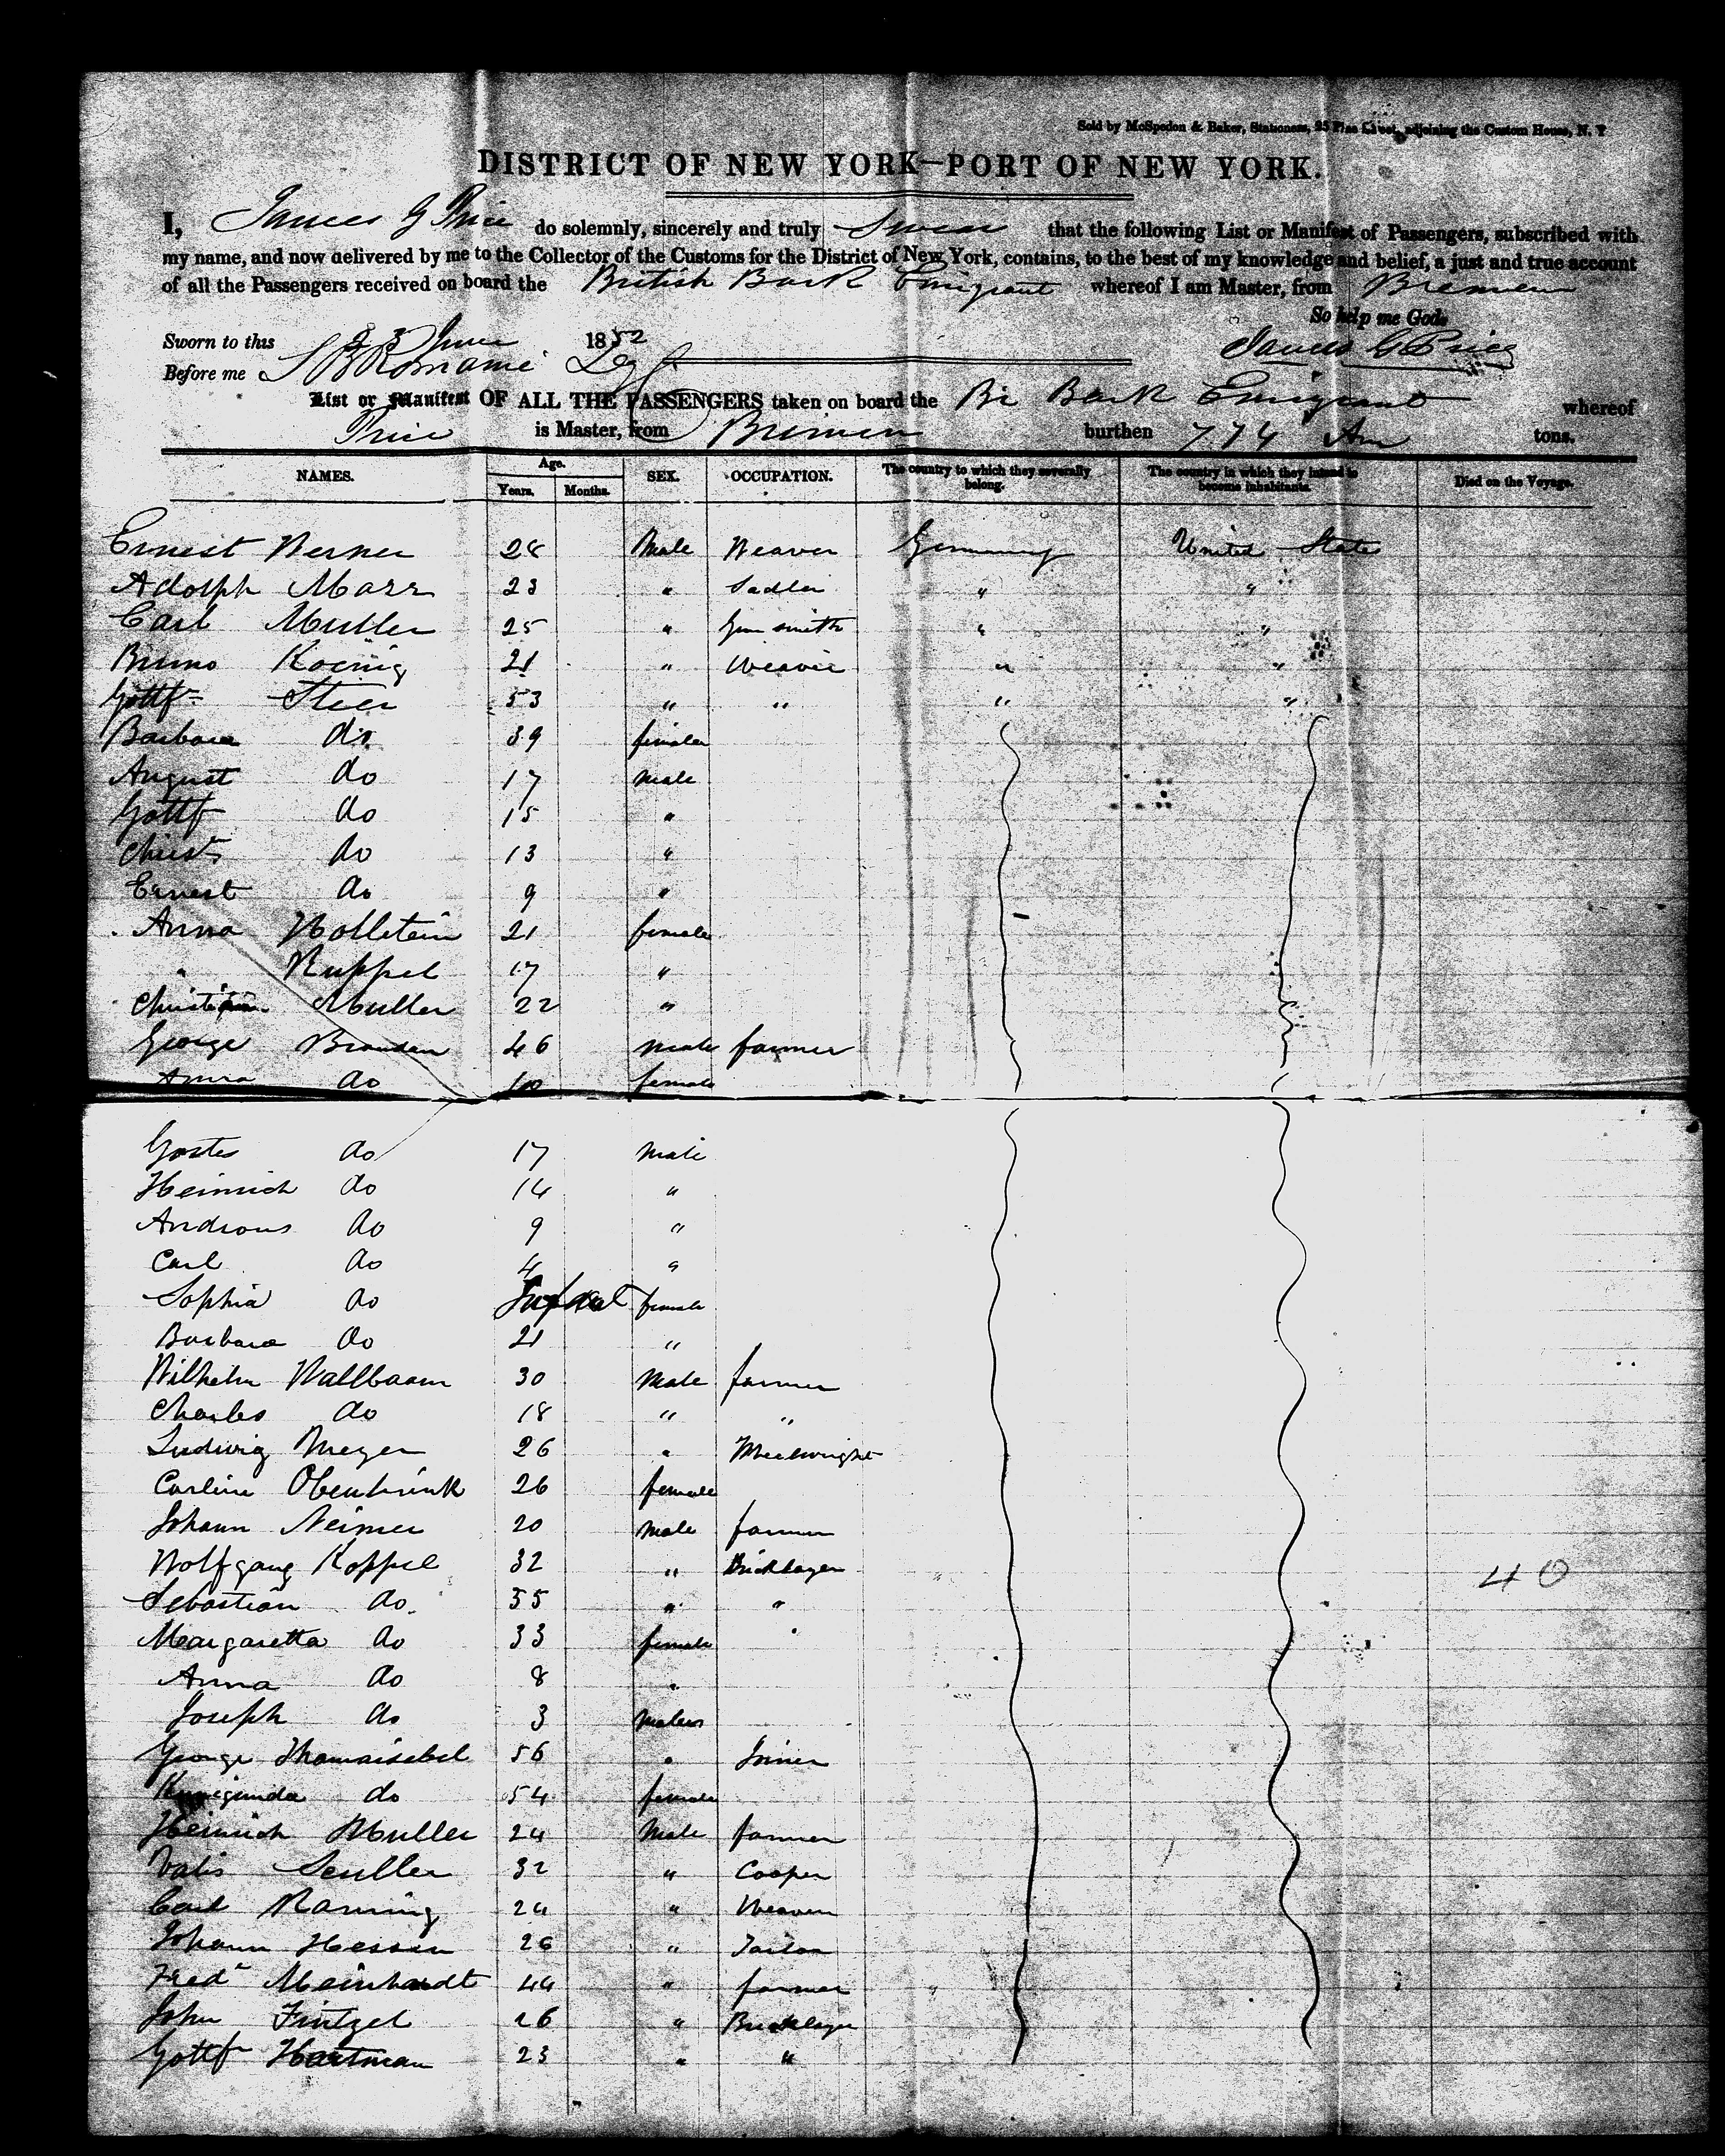 Sold by McSpedon & Baker, Stationers, 25 Pine Street, adjoining the Custom House, N. Y
DISTRICT OF NEW YORK—PORT OF NEW YORK.
I, James G Price do solemnly, sincerely and truly Swear that the following List or Manifest of Passengers, subscribed with
my name, and now delivered by me to the Collector of the Customs for the District of New York, contains, to the best of my knowledge and belief, a just and true account
of all the Passengers received on board the British Bark Emigrant whereof I am Master, from Bremen
So help me God.
Sworn to this 23 June 1852 James G Price
Before me
List or Manifest OF ALL THE PASSENGERS taken on board the Br Bark Emigrant whereof
Price is Master, from Bremen burthen 774 tons.
NAMES. Age. Years. Months. SEX. OCCUPATION. The country to which they severally belong. The country in which they intend to become inhabitants. Died on the Voyage.
Ernest Werner 28 Male Weaver Germany United States
Adolph Marr 23 " Sadler " "
Carl Muller 25 " Gun smith " "
Bruno Koenig 21 " Weaver " "
Gottfr Stier 53 " " " "
Barbara do 39 female
August do 17 male
Gottf do 15 "
Christ do 13 "
Ernest do 9 "
Anna Hollstein 21 female
" Ruppel 17 "
Muller 22 "
George Brauden 46 male farmer
Anna do 40 female
do 17 male
Heinrich do 14 "
Andreas do 9 "
Carl do 4 "
Sophia do Infant female
Barbara do 21 "
Wilhelm Wallbaum 30 Male farmer
Charles do 18 " "
Ludwig Meyer 26 " Wheelwright
Carline Obenhrink 26 female
Johann Neimer 20 male farmer
Wolfgang Koppel 32 " Bricklayer
Sebastian do. 35 " "
Margaretta do 33 female "
Anna do 8 "
Joseph do 3 male
George 56 " Joiner
Kunigunda do 54 female
Heinrich Muller 24 Male farmer
32 " Cooper
Carl Ranning 24 " Weaver
Johann Hessen 26 " Tailor
Fredr Meinhardt 44 " farmer
John Fintzel 26 " Bricklayer
Gottf Hartman 23 " "
40